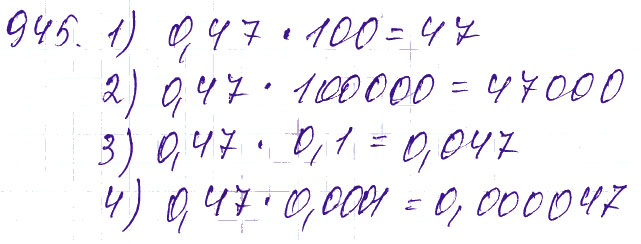 945. 1) 0,47 · 100 = 47
2) 0,47 · 100000 = 47000
3) 0,47 · 0,1 = 0,047
4) 0,47 · 0,0001 = 0,000047